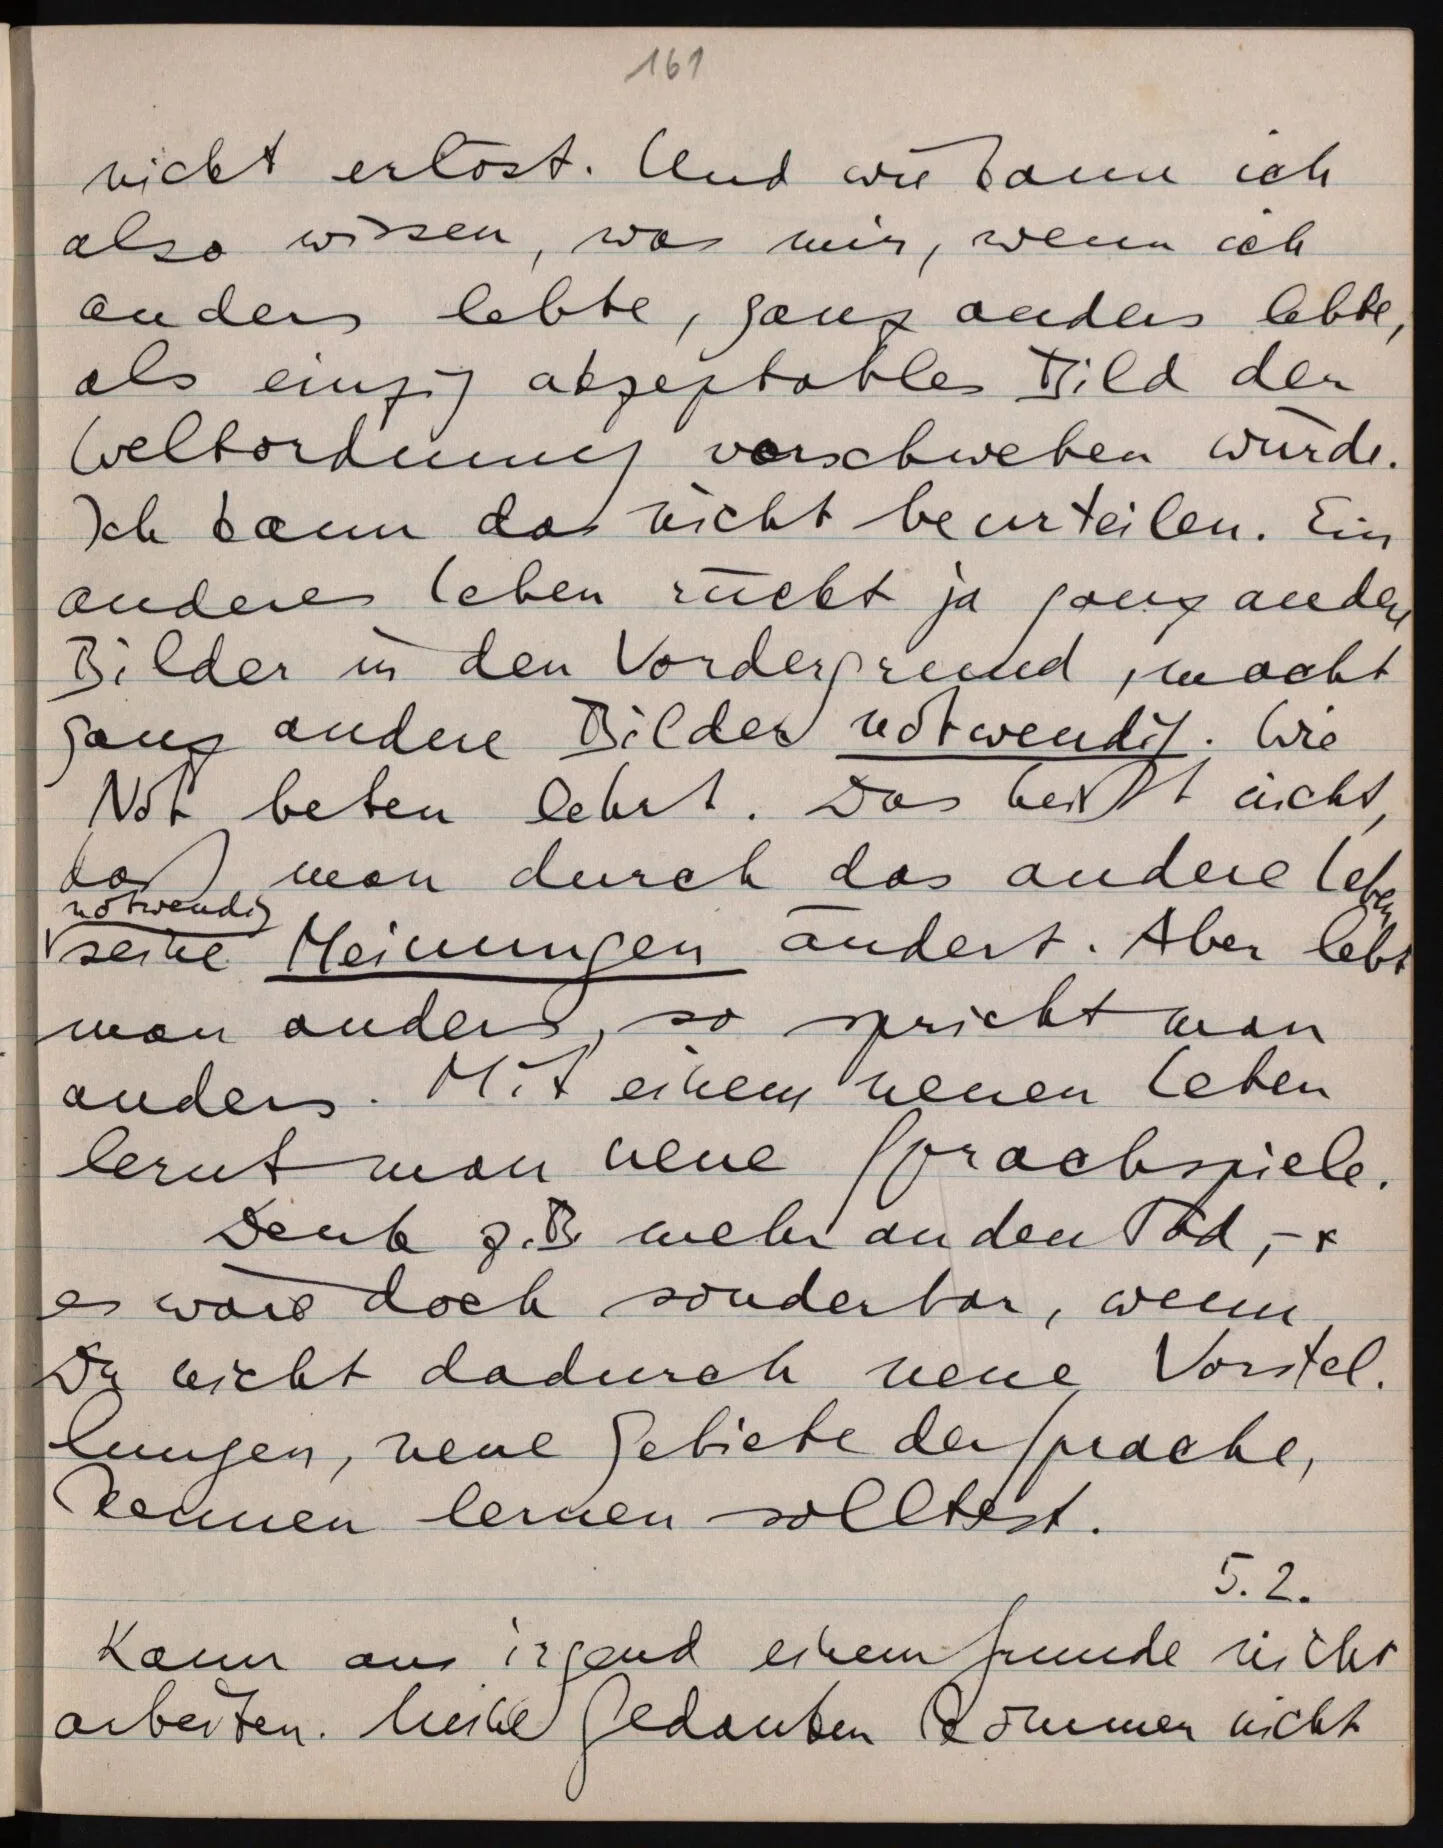 161
nicht erlöst. Und wie kann ich
also wissen, was mir, wenn ich
anders lebte, ganz anders lebte,
als einzig akzeptables Bild der
Weltordnung vorschweben würde.
Ich kann das nicht beurteilen. Ein
anderes Leben rückt ja ganz andere
Bilder in den Vordergrund, macht
ganz andere Bilder notwendig. Wie
Not beten lehrt. Das heißt nicht,
daß man durch das andere Leben
notwendig
seine Meinungen ändert. Aber lebt
man anders, so spricht man
anders. Mit einem neuen Leben
lernt man neue Sprachspiele.
Denk z.B. mehr an den Tod, –
es wäre doch sonderbar, wenn
Du nicht dadurch neue Vorstel-
lungen, neue Gebiete der Sprache,
kennen lernen solltest.
5.2.
Kann aus irgend einem Grunde nicht
arbeiten. Meine Gedanken kommen nicht